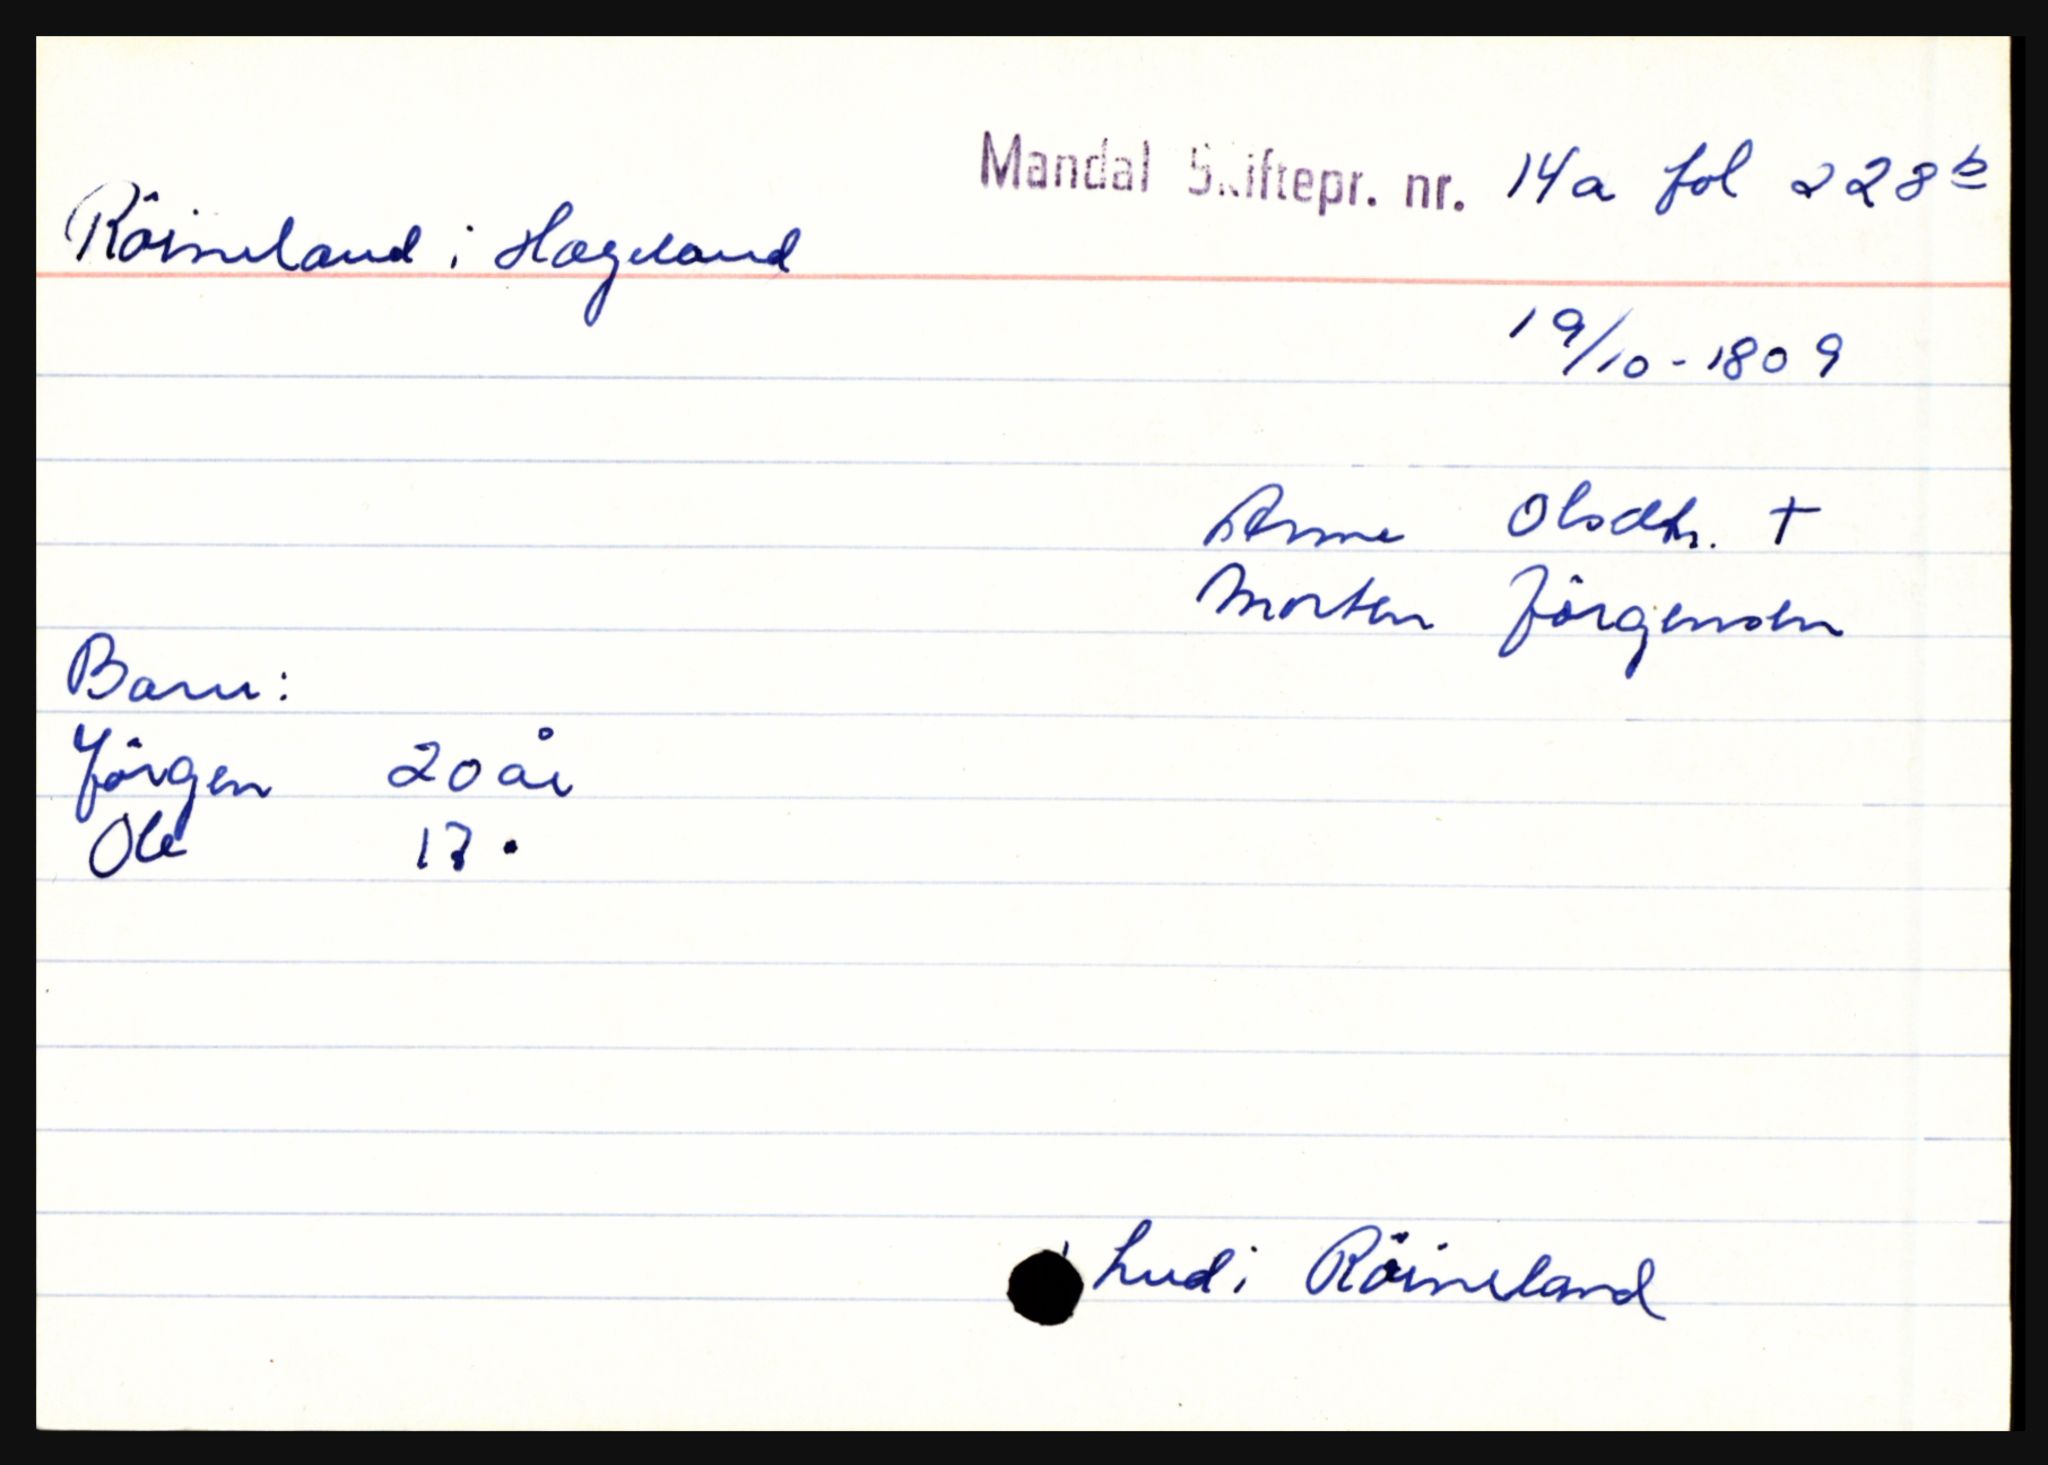 Mandal Skiftepr. nr. 14a fol 228 b
Röineland i Hægeland
19/10-1809
Anne Olsdtr. +
Morten Jörgensen
Barn:
Jörgen 20 år
Ole 17 "
Lud i Röineland